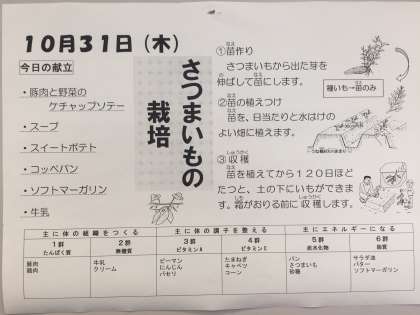 10月31日（木）
今日の献立
・豚肉と野菜の
ケチャップソテー
・スープ
・スイートポテト
・コッペパン
・ソフトマーガリン
・牛乳
さつまいもの
栽培
①苗作り
さつまいもから出た芽を
伸ばして苗にします。
種いも→苗のみ
②苗の植えつけ
苗を、日当たりと水はけの
よい畑に植えます。
③収穫
苗を植えてから120日ほど
たつと、土の下にいもができま
す。霜がおりる前に収穫します。
主に体の組織をつくる
主に体の調子を整える
主にエネルギーになる
1群
たんぱく質
2群
無機質
3群
ビタミンA
4群
ビタミンC
5群
炭水化物
6群
脂質
豚肉
鶏肉
牛乳
クリーム
ピーマン
にんじん
パセリ
たまねぎ
キャベツ
コーン
パン
さつまいも
砂糖
サラダ油
バター
ソフトマーガリン